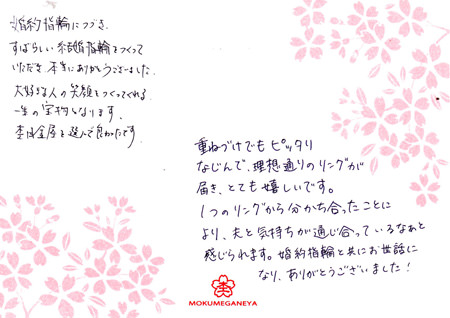 婚約指輪につづき、
すばらしい結婚指輪をつくって
いただき、本当にありがとうございました。
大好きな人の笑顔をつくってくれる
一生の宝物となります。
杢目金屋を選んで良かったです。
重ねづけでもピッタリ
なじんで、理想通りのリングが
届き、とても嬉しいです。
1つのリングから分かち合ったことに
より、夫と気持ちが通じ合っているなあと
感じられます。婚約指輪と共にお世話に
なり、ありがとうございました!
MOKUMEGANEYA